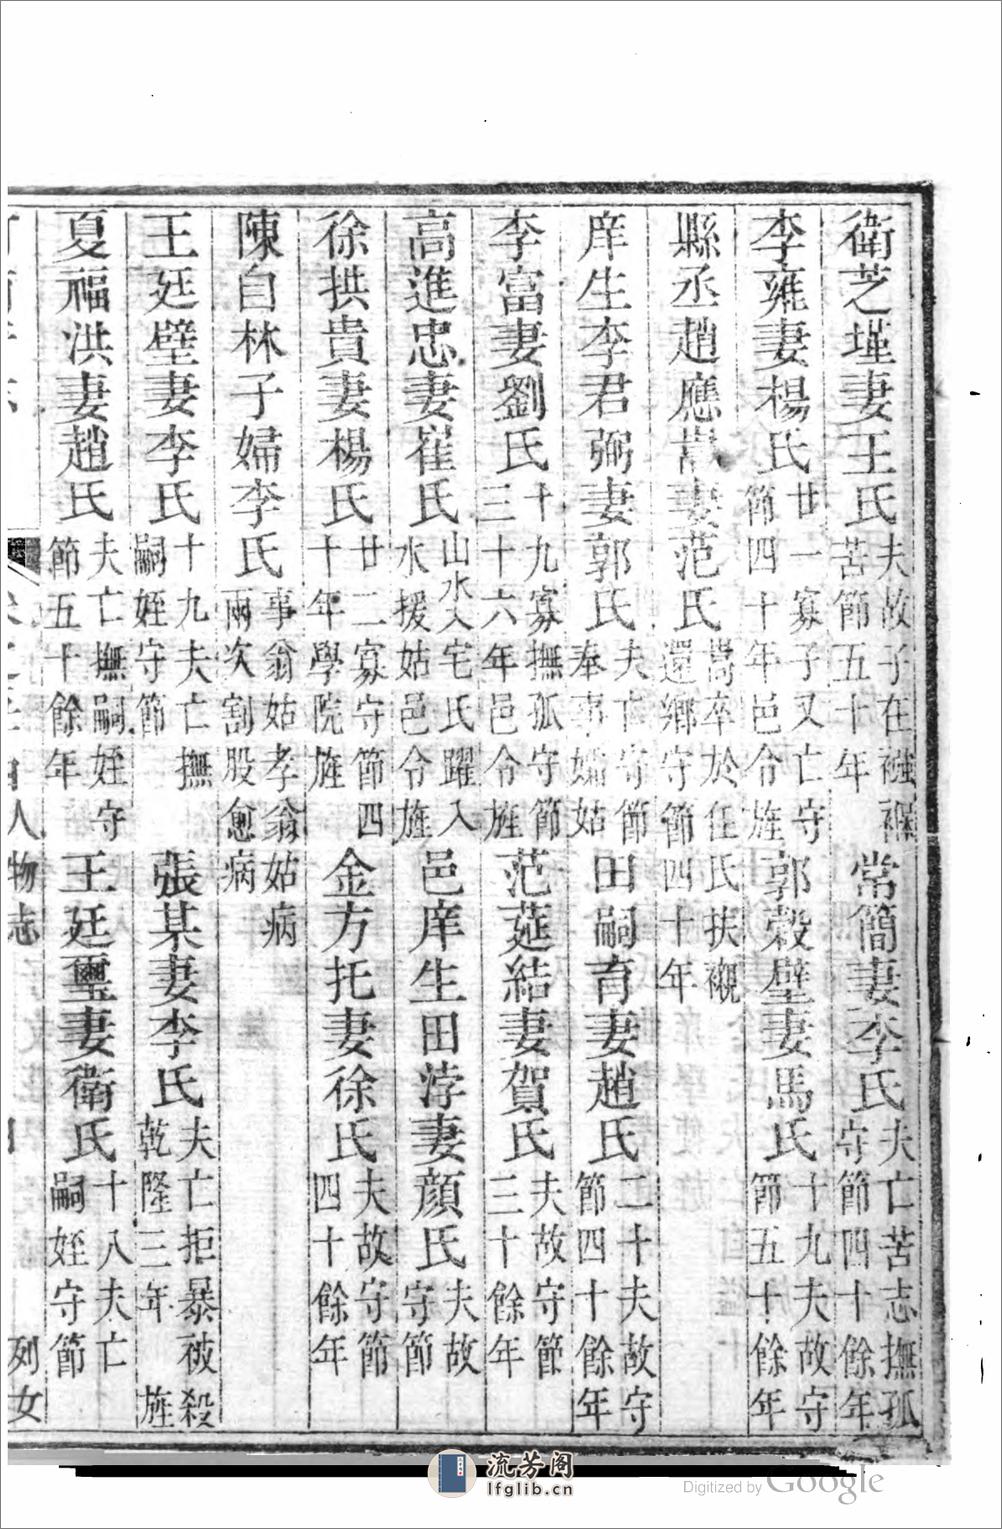 衛芝墐妻王氏夫故子在襁褓苦節五十年 常簡妻李氏夫亡苦志撫孤守節四十餘年
李雍妻楊氏廿一寡子又亡守節四十年邑令旌 郭穀璧妻馬氏十九夫故守節五十餘年
縣丞趙應嵩妻范氏嵩卒於任氏扶襯還鄉守節四十年
庠生李君弼妻郭氏夫亡守節奉事孀姑 田嗣育妻趙氏二十夫故守節四十餘年
李富妻劉氏十九寡撫孤守節三十六年邑令旌 范莚結妻賀氏夫故守節三十餘年
高進忠妻崔氏山水入宅氏躍入水援姑邑令旌 邑庠生田浡妻顔氏夫故守節
徐拱貴妻楊氏廿二寡守節四十年學院旌 金方托妻徐氏夫故守節四十餘年
陳自林子婦李氏事翁姑孝翁姑病兩次割股愈病
王廷璧妻李氏十九夫亡撫嗣姪守節 張某妻李氏夫亡拒暴被殺乾隆三年旌
夏福洪妻趙氏夫亡撫嗣姪守節五十餘年 王廷璽妻衛氏十八夫亡嗣姪守節
人物志 列女
流芳阁
lfglib.cn
Digitized by Google